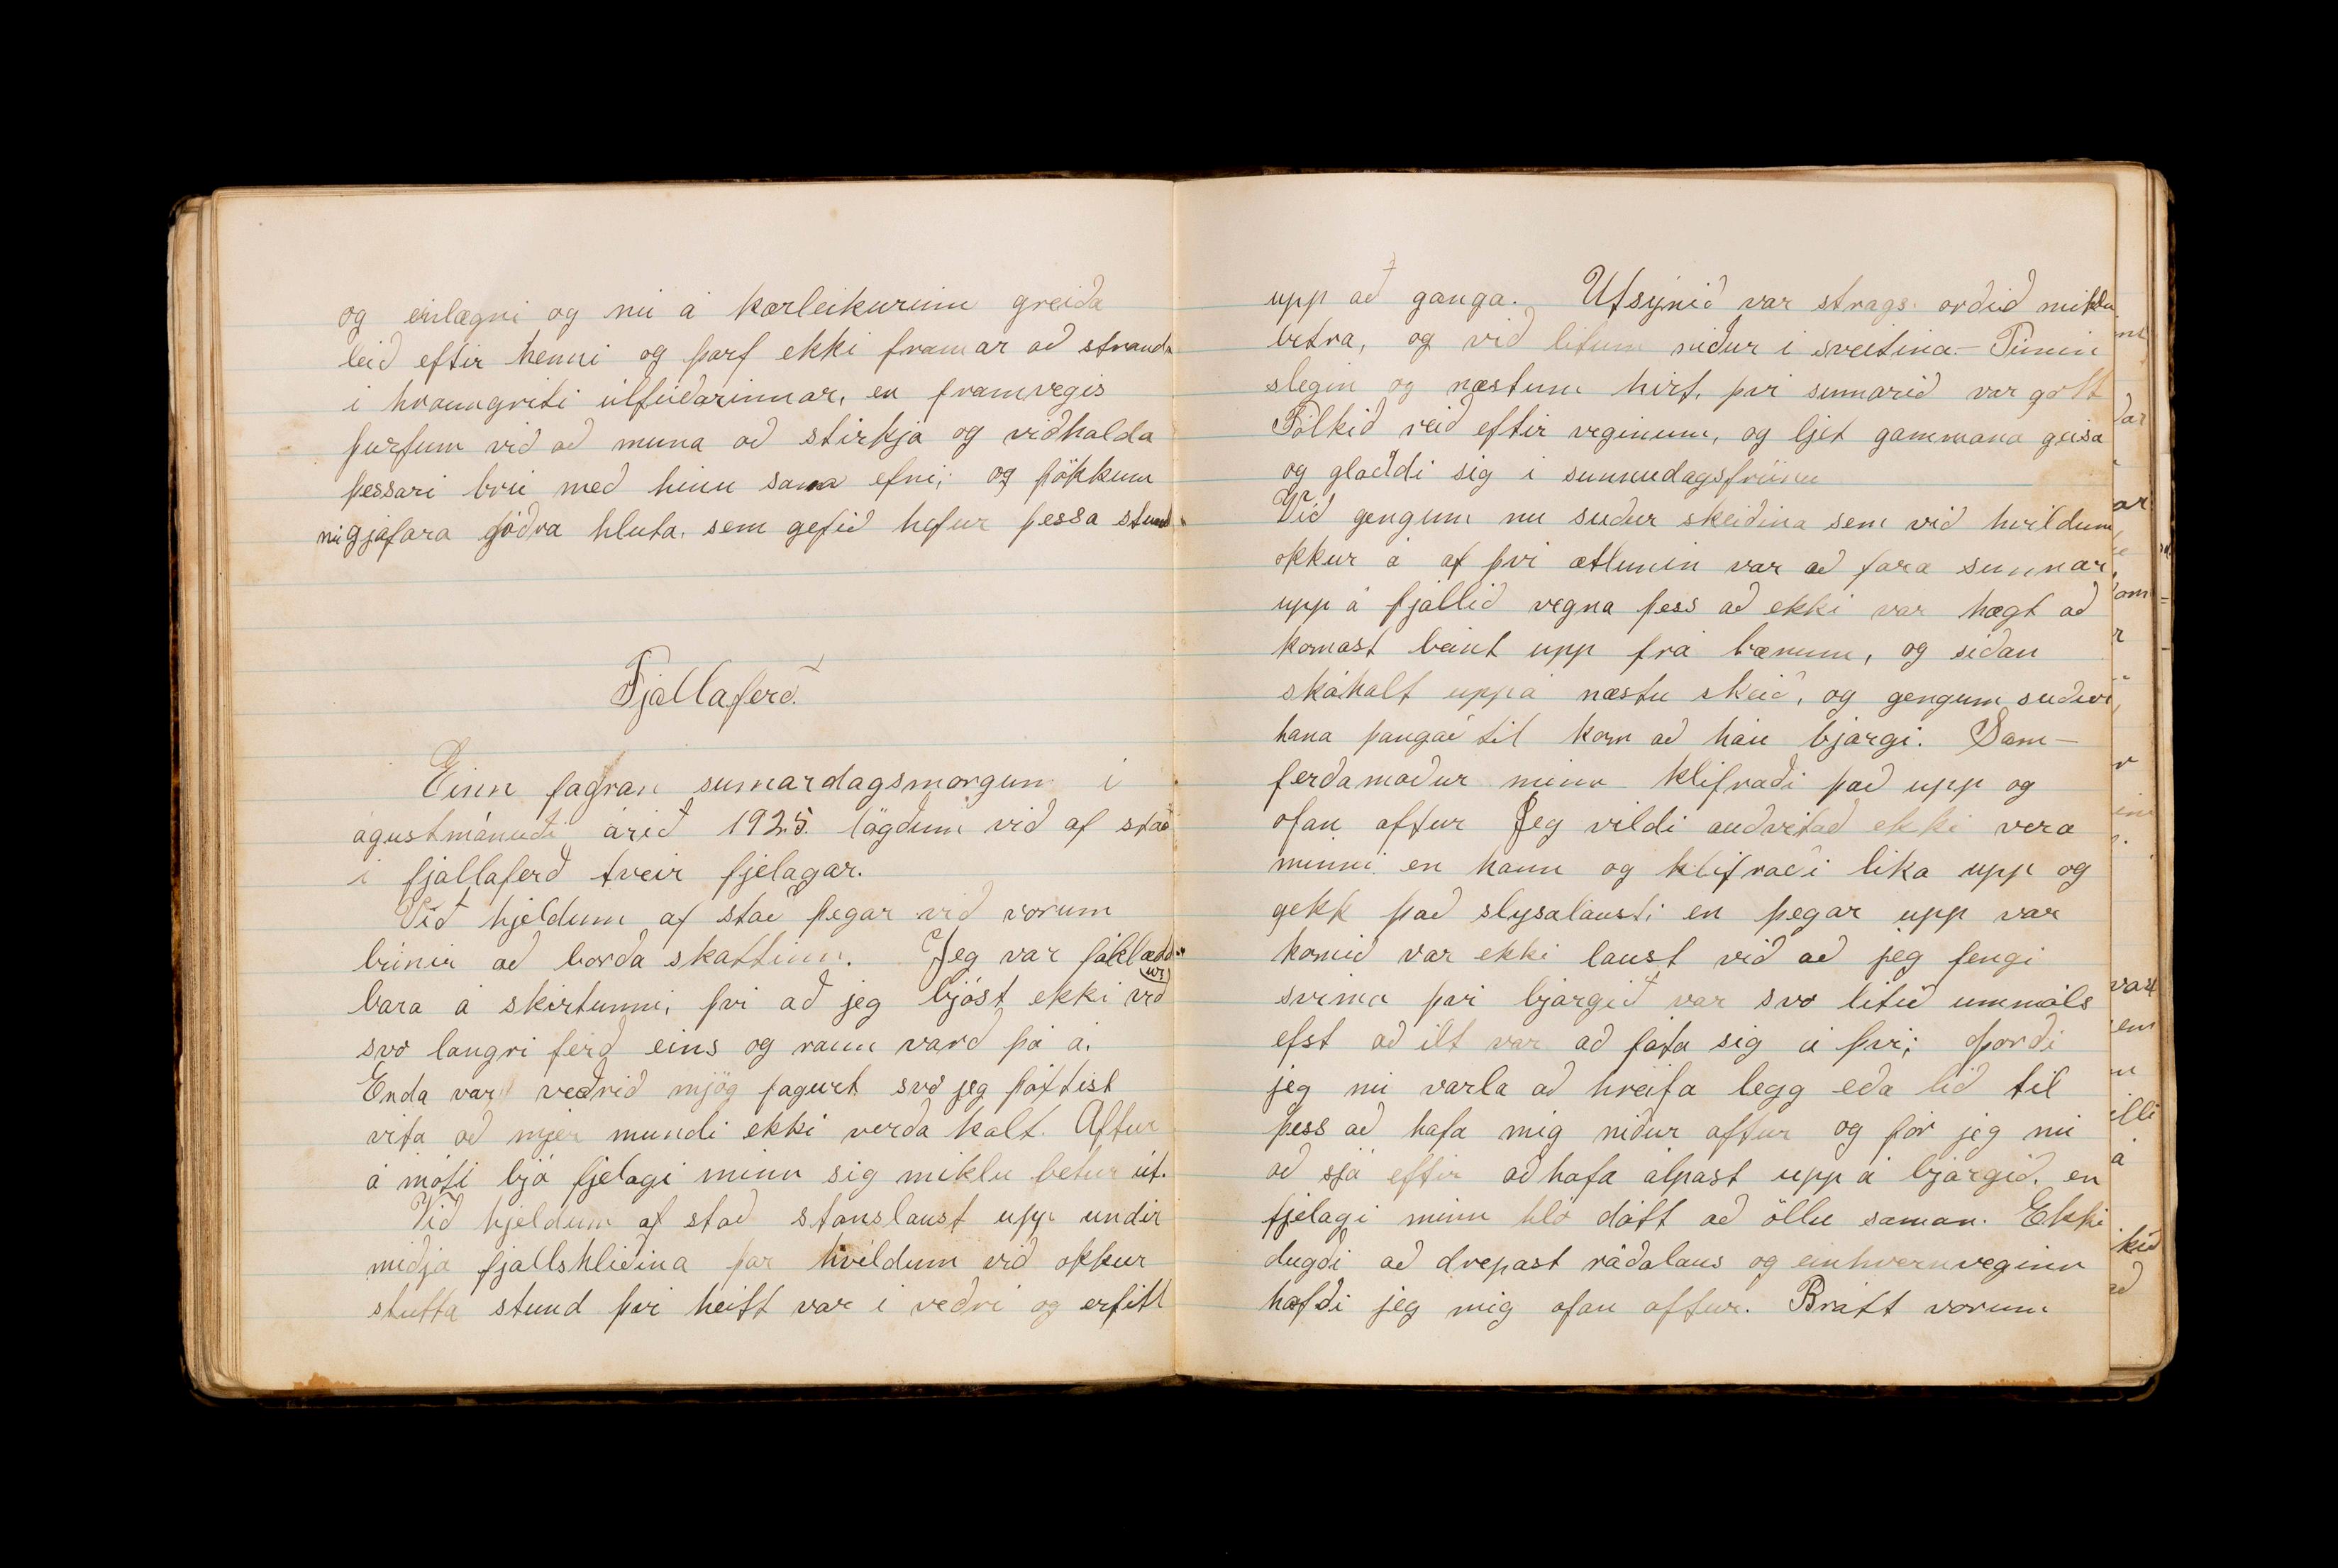 og einlægni og nú á kærleikurinn greiða
leið eftir henni og þarf ekki framar að stranda
í hraungríti úlfúðarinnar, en framvegis
þurfum við að muna að stirkja og viðhalda
þessari brú með hinu sama efni; og þökkum
nú gjafara góðra hluta, sem gefið hefur þessa stund.
Fjallaferð.
Einn fagran sumardagsmorgun í
ágústmánuði árið 1925. lögðum við af stað
í fjallaferð tveir fjelagar.
Við hjeldum af stað þegar við vorum
búnir að borða skattinn. Jeg var fáklædd-
(ur)
bara á skirtunni, því að jeg bjóst ekki við
svo langri ferð eins og raun varð þá á.
Enda var veðrið mjög fagurt svo jeg þóttist
vita að mjer mundi ekki verða kalt. Aftur
á móti bjó fjelagi minn sig miklu betur út.
Við hjeldum af stað stanslaust upp undir
miðja fjallshlíðina þar hvíldum við okkur
stutta stund því heitt var í veðri og erfitt
upp að ganga. Utsýnið var strags orðið miklu
betra, og við litum niður í sveitina.- Túnin
slegin og næstum hirt, því sumarið var gott
Fólkið reið eftir veginum, og ljet gammana geisa
og gladdi sig í sunnudagsfríinu
Við gengum nu suður skeiðina sem við hvildum
okkur á af því ætlunin var að fara sunnar
upp á fjallið vegna þess að ekki var hægt að
komast beint upp frá bænum, og síðan
skáhalt uppá næstu skeið, og gengum suður
hana þangað til kom að háu bjargi. Sam-
ferðamaður minn klifraði það upp og
ofan aftur Jeg vildi auðvitað ekki vera
minni en hann og klifraði líka upp og
gekk það slysalaust; en þegar upp var
komið var ekki laust við að jeg fengi
svima því bjargið var svo lítið ummáls
efst að ilt var að fóta sig á því; þorði
jeg nú varla að hreifa legg eða lið til
þess að hafa mig niður aftur og fór jeg nú
að sjá eftir að hafa álpast upp á bjargið, en
fjelagi minn hló dátt að öllu saman. Ekki
dugði að drepast ráðalaus og einhvernveginn
hafði jeg mig ofan aftur. Brátt vorum